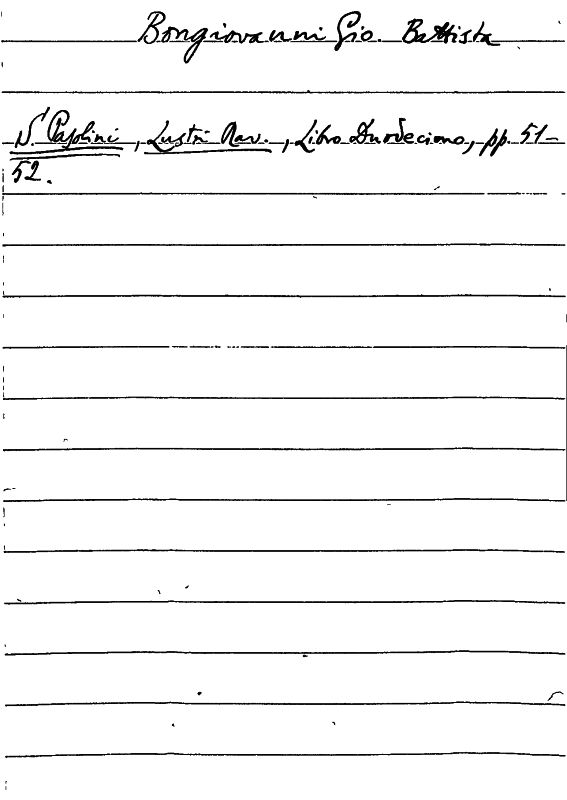 Bongiovanni Gio. Battista
S. Pasolini, Lustri Rav., Libro Duodecimo, pp. 51-
52.